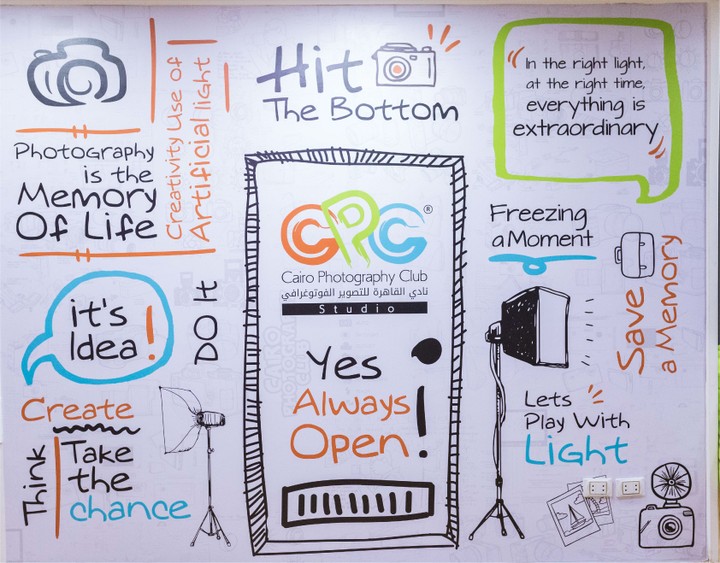 Photography
is the
Memory
Of Life
Creativity Use Of
Artificial light
Hit
The Bottom
"In the right light,
at the right time,
everything is
extraordinary"
it's
Idea!
DO It
CPC®
Cairo Photography Club
نادي القاهرة للتصوير الفوتوغرافي
Studio
Yes
Always
Open!
Freezing
a Moment
Save
a Memory
Create
Think
Take
the
chance
Lets
Play With
Light